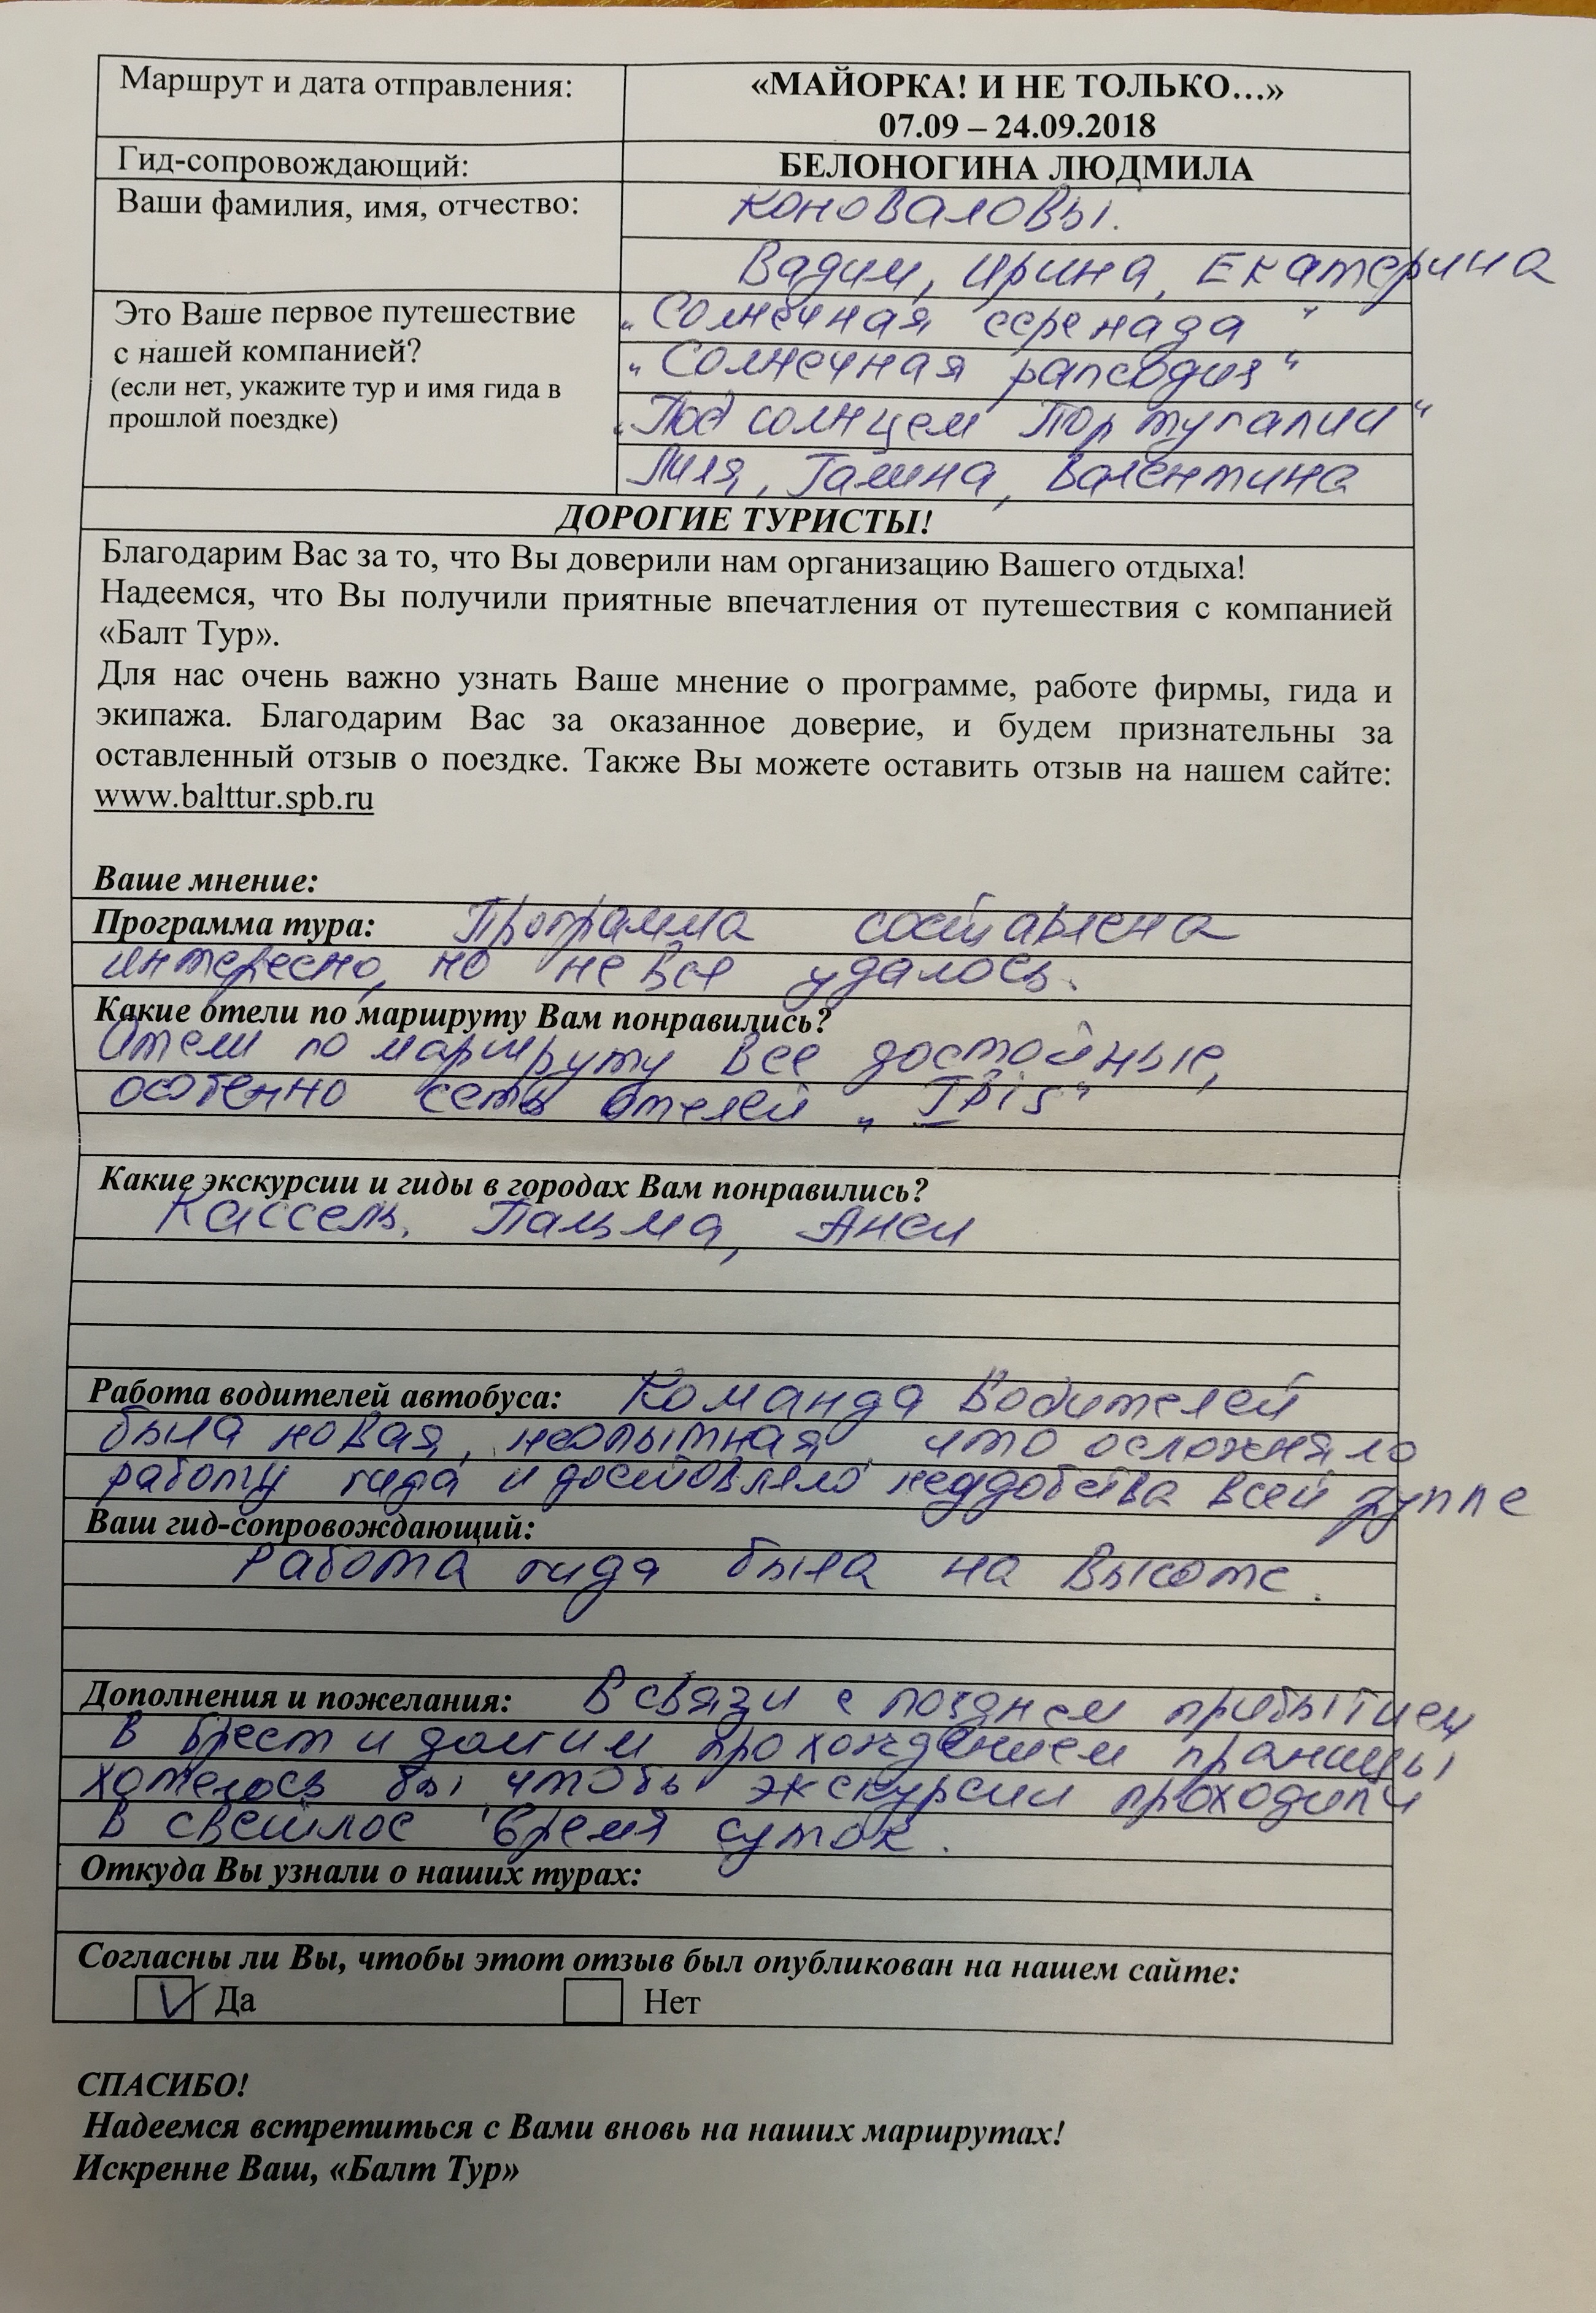 Маршрут и дата отправления:
«МАЙОРКА! И НЕ ТОЛЬКО…»
07.09 – 24.09.2018
Гид-сопровождающий:
БЕЛОНОГИНА ЛЮДМИЛА
Ваши фамилия, имя, отчество:
Коноваловы.
Вадим, Ирина, Екатерина
Это Ваше первое путешествие
с нашей компанией?
(если нет, укажите тур и имя гида в
прошлой поездке)
„Солнечная серенада"
„Солнечная рапсодия"
„Под солнцем Португалии"
Лиля, Галина, Валентина
ДОРОГИЕ ТУРИСТЫ!
Благодарим Вас за то, что Вы доверили нам организацию Вашего отдыха!
Надеемся, что Вы получили приятные впечатления от путешествия с компанией
«Балт Тур».
Для нас очень важно узнать Ваше мнение о программе, работе фирмы, гида и
экипажа. Благодарим Вас за оказанное доверие, и будем признательны за
оставленный отзыв о поездке. Также Вы можете оставить отзыв на нашем сайте:
www.balttur.spb.ru
Ваше мнение:
Программа тура: Программа составлена
интересно, но не все удалось.
Какие отели по маршруту Вам понравились?
Отели по маршруту все достойные,
особенно сеть отелей „Ibis"
Какие экскурсии и гиды в городах Вам понравились?
Кассель, Пальма, Анси
Работа водителей автобуса: Команда водителей
была новая, неопытная, что осложняло
работу гида и доставляло неудобства всей группе
Ваш гид-сопровождающий:
Работа гида была на высоте.
Дополнения и пожелания: В связи с поздним прибытием
в Брест и долгим прохождением границы
хотелось бы, чтобы экскурсии проходили
в светлое время суток.
Откуда Вы узнали о наших турах:
Согласны ли Вы, чтобы этот отзыв был опубликован на нашем сайте:
Да Нет
СПАСИБО!
Надеемся встретиться с Вами вновь на наших маршрутах!
Искренне Ваш, «Балт Тур»